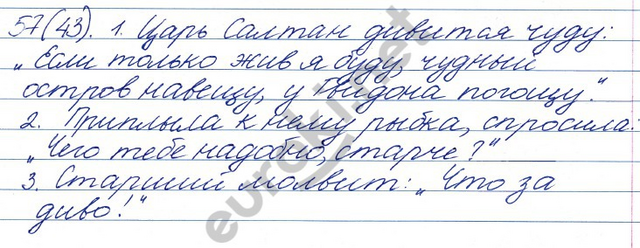 57(43). 1. Царь Салтан дивится чуду:
„Если только жив я буду, чудный
остров навещу, у Гвидона погощу“.
2. Приплыла к нему рыбка, спросила:
„Чего тебе надобно, старче?“
3. Старший молвит: „Что за
диво!“
euroki.net